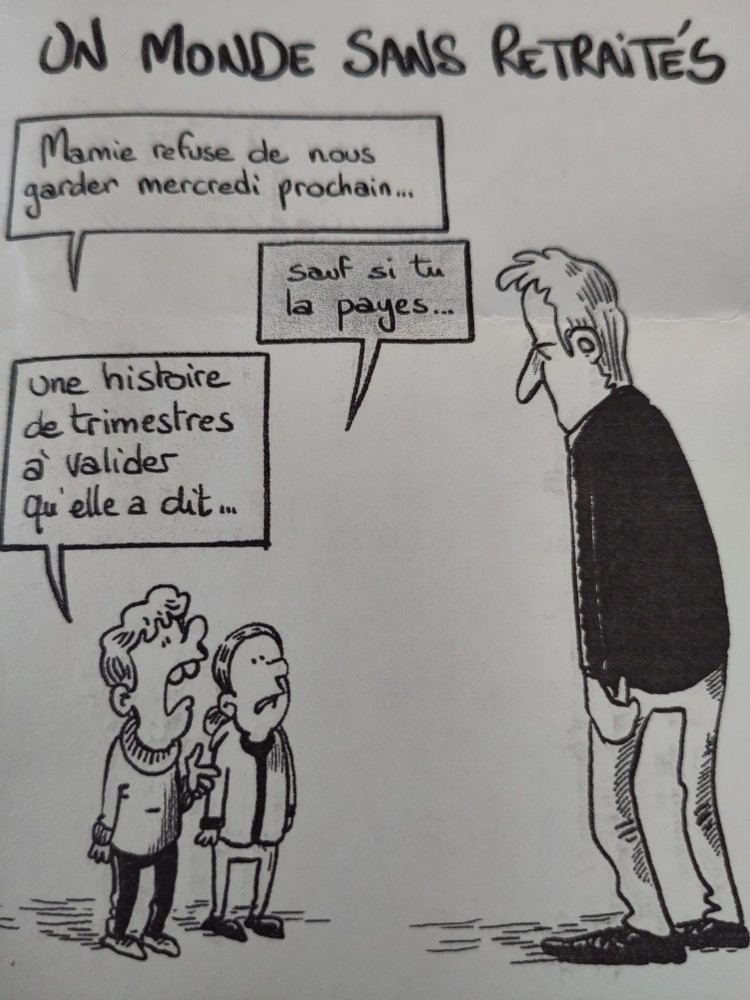 UN MONDE SANS RETRAITÉS
Mamie refuse de nous
garder mercredi prochain...
sauf si tu
la payes...
une histoire
de trimestres
à valider
qu'elle a dit...